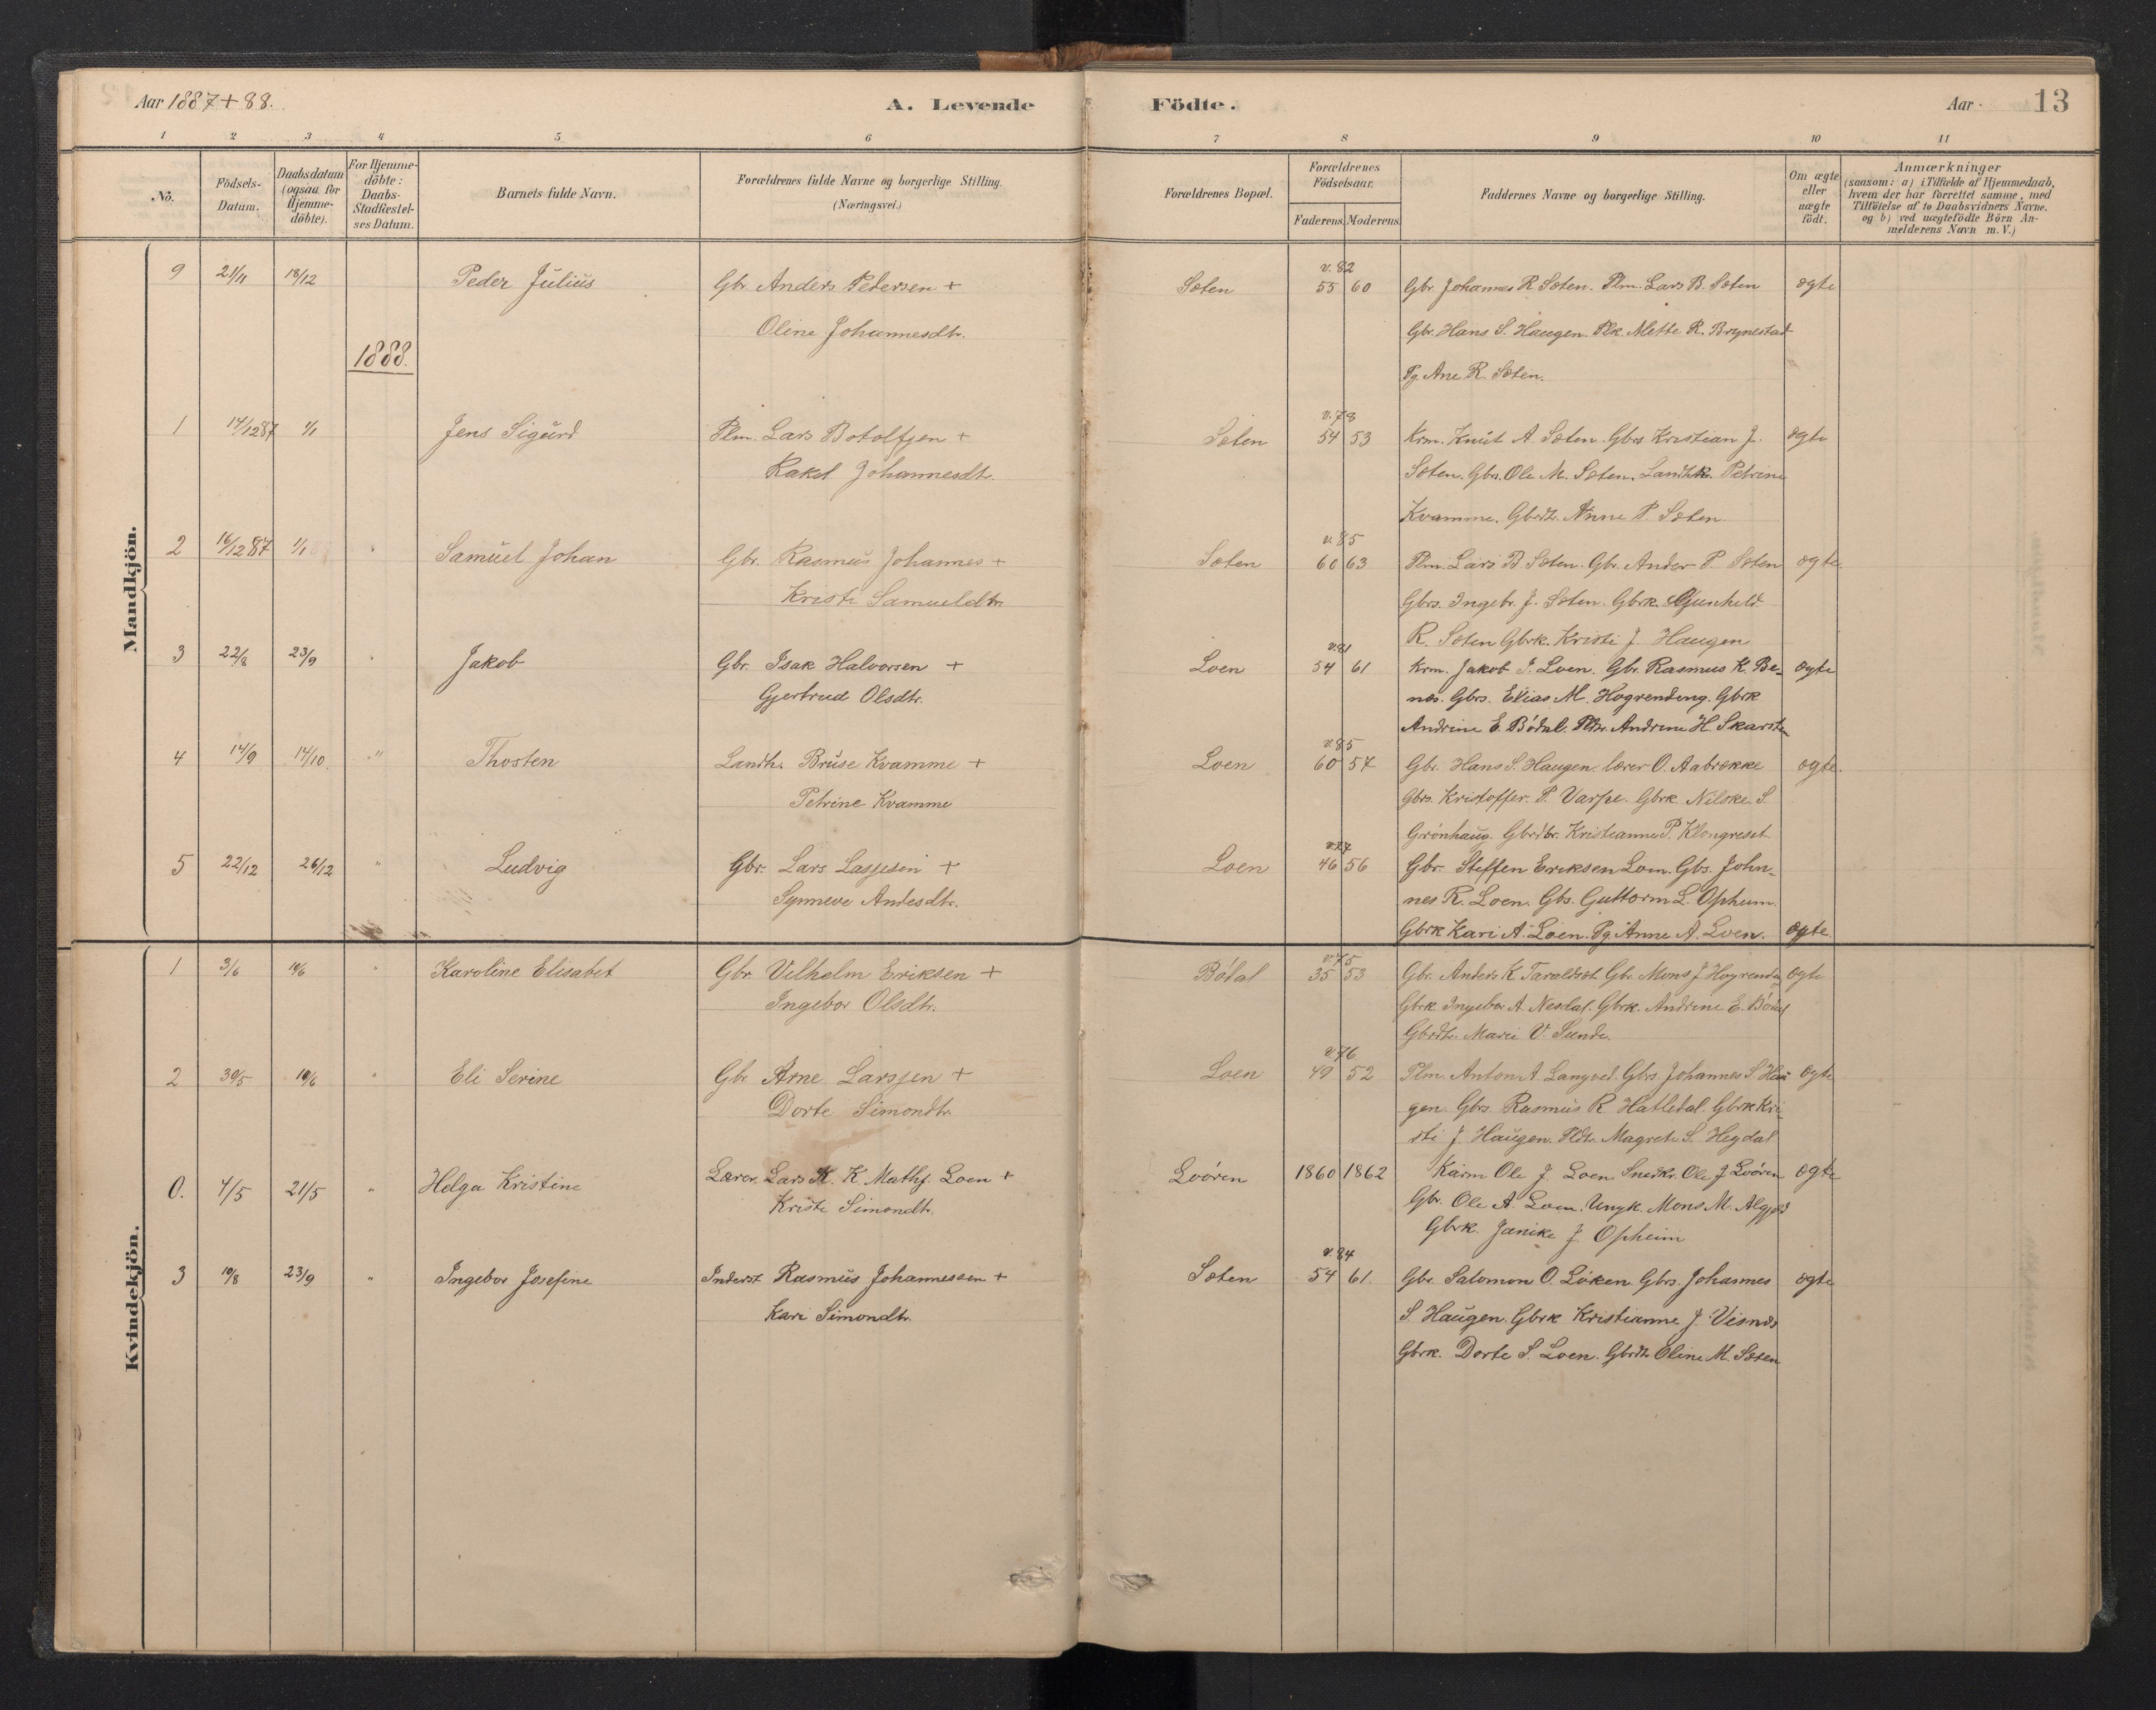 Aar 1887+88.
A. Levende Födte.
Aar
13
1 2 3 4 5 6 7 8 9 10 11
No.
Födsels-
Datum.
Daabsdatum
(ogsaa for
Hjemme-
döbte).
For Hjemme-
döbte:
Daabs-
Stadfæstel-
ses Datum.
Barnets fulde Navn.
Forældrenes fulde Navne og borgerlige Stilling.
(Næringsvei.)
Forældrenes Bopæl.
Forældrenes
Födselsaar.
Faderens. Moderens.
Faddernes Navne og borgerlige Stilling.
Om ægte
eller
uægte
födt.
Anmærkninger
(saasom: a) i Tilfælde af Hjemmedaab,
hvem der har forrettet samme, med
Tilföielse af to Daabsvidners Navne.
og b) ved uægtefödte Börn An-
melderens Navn m. V.)
Mandkjön.
9 21/11 18/12 Peder Julius Gbr. Anders Pedersen + Sæten v. 82 55 60 Gbr. Johannes R Sæten. Plm. Lars B. Sæten ægte
Oline Johannesdtr. Gbr. Hans S. Haugen. Plk. Mette R. Brynestad
Pg. Ane R. Sæten.
1888.
1 14/12 87 1/1 Jens Sigurd Plm. Lars Botolfsen + Sæten v. 78 54 53 Krm. Knut A Sæten. Gbrs Kristian J. ægte
Rakel Johannesdt. Sæten. Gbrs. Ole M. Sæten. Landhk. Petrine
Kvamme. Gbrdt. Anne P. Sæten.
2 16/12 87 1/1 " Samuel Johan Gbr. Rasmus Johannes + Sæten v. 85 60 63 Plm. Lars B Sæten. Gbr. Ander P. Sæten ægte.
Kristi Samueldtr. Gbrs. Ingebr. J. Sæten. Gbrk. Gunhild
R. Sæten Gbrk. Kristi J. Haugen
3 22/8 23/9 " Jakob Gbr. Isak Halvorsen + Loen v. 81 54 61 Krm. Jakob J. Loen. Gbr. Rasmus K. Be- ægte
Gjertrud Olsdtr. næs. Gbrs. Elias M. Hogrendeng. Gbrk
Andrine E. Bødal. Andrine H Skarsten
4 14/9 14/10 " Thosten Landh. Bruse Kvamme + Loen v. 85 60 57 Gbr. Hans S. Haugen. lærer O. Aabrække ægte.
Petrine Kvamme Gbrs. Kristoffer P. Varpe. Gbrk. Nilske S.
Grønhaug. Gbrdtr. Kristianne P. Klongreset
5 22/12 26/12 " Ludvig Gbr. Lars Lassesen + Loen v. 77 46 56 Gbr. Steffen Eriksen Loen. Gbs. John-
Synneve Andesdtr. nes R. Loen. Gbs. Guttorm L. Opheim.
Gbrk Kari A. Loen. Pg. Anne A. Loen. ægte
Kvindekjön.
1 3/6 10/6 " Karoline Elisabet Gbr Vilhelm Eriksen + Bødal v. 75 35 53 Gbr. Anders K. Taraldset. Gbr. Mons J Hogrending ægte
Ingebor Olsdtr. Gbrk Ingebor A Nesdal. Gbrk. Andrine E. Bødal
Gbrdtr. Marie V. Sunde.
2 30/5 10/6 " Eli Serine Gbr Arne Larssen + Loen v. 76 49 52 Plm. Anton A Langved. Gbrs. Johannes S. Hau- ægte
Dorte Simondtr. gen. Gbrs. Rasmus R. Hatledal. Gbrk Kri-
sti J. Haugen. Pldtr. Magrete S. Hegdal
0. 4/5 21/5 " Helga Kristine Lærer. Lars K. K. Loen + Lvøren 1860 1862 Karm Ole J. Loen Snedkr. Ole J Lvøren ægte
Kristi Simondtr. Gbr. Ole A. Loen. Ungk. Mons M. Algjeld
Gbrk. Janike J. Opheim
3 10/8 23/9 " Ingebor Josefine Inderst Rasmus Johannessen + Sæten v. 84 54 61. Gbr Salomon O. Løken. Gbrs. Johannes ægte
Kari Simondtr. S. Haugen. Gbrk Kristianne J. Visnæs
Gbrk. Dorte S. Loen. Gbrdt. Oline M. Sæten